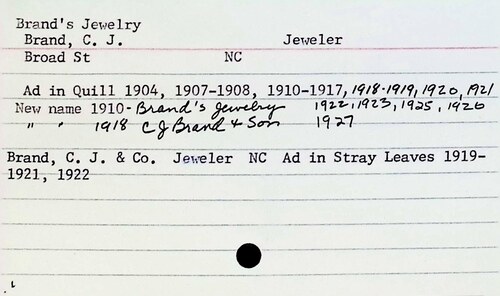 Brand's Jewelry
Brand, C. J. Jeweler
Broad St NC
Ad in Quill 1904, 1907-1908, 1910-1917, 1918-1919, 1920, 1921
New name 1910- Brand's Jewelry 1922, 1923, 1925, 1926
" " 1918 C J Brand & Son 1927
Brand, C. J. & Co. Jeweler NC Ad in Stray Leaves 1919-
1921, 1922